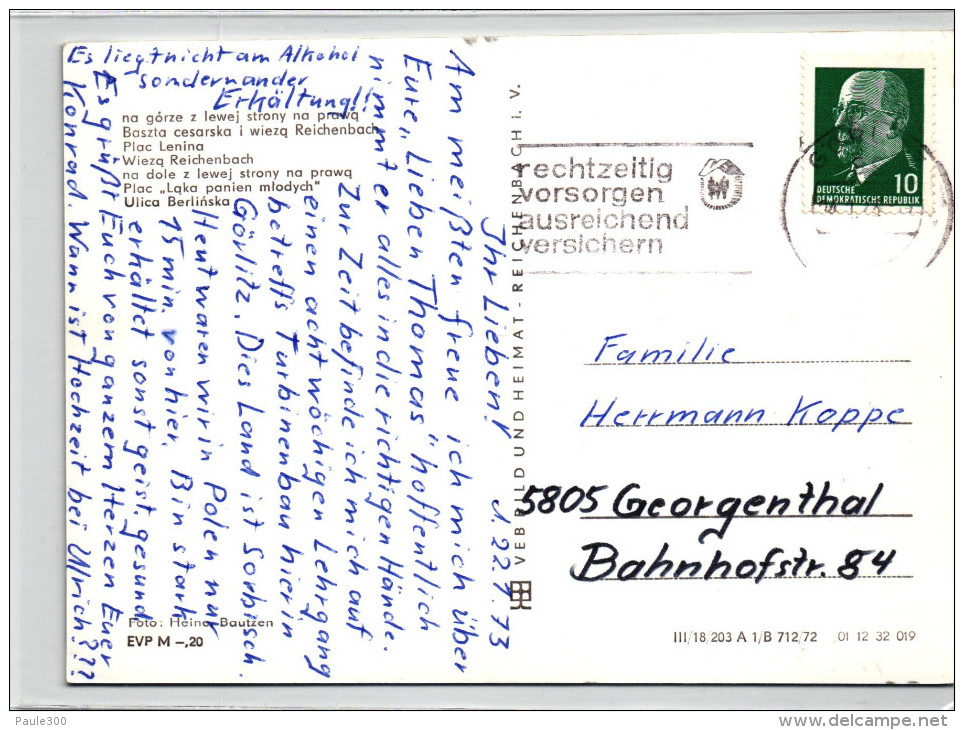 Es liegt nicht am Alkohol
sondern an der
Erkältung!!
na górze z lewej strony na prawą
Baszta cesarska i wiezą Reichenbach
Plac Lenina
Wiezą Reichenbach
na dole z lewej strony na prawą
Plac „Ląka panien młodych"
Ulica Berlińska
Ihr Lieben! d. 22.1.73
Am meißten freue ich mich über
Eure „Lieben Thomas" hoffentlich
nimmt er alles in die richtigen Hände.
Zur Zeit befinde ich mich auf
einen achtwöchigen Lehrgang
betreffs Turbinenbau hier in
Görlitz. Dies Land ist Sorbisch.
Heut waren wir in Polen nur
15 min. von hier. Bin stark
erkältet sonst geist. gesund
Es grüßt Euch von ganzem Herzen Euer
Konrad. Wann ist Hochzeit bei Ulrich???
Foto: Heine, Bautzen
EVP M –,20
VEB BILD UND HEIMAT - REICHENBACH i. V.
rechtzeitig
vorsorgen
ausreichend
versichern
10
DEUTSCHE
DEMOKRATISCHE REPUBLIK
Familie
Herrmann Koppe
5805 Georgenthal
Bahnhofstr. 84
III/18/203 A 1/B 712/72 01 12 32 019
Paule300
delcampe.net